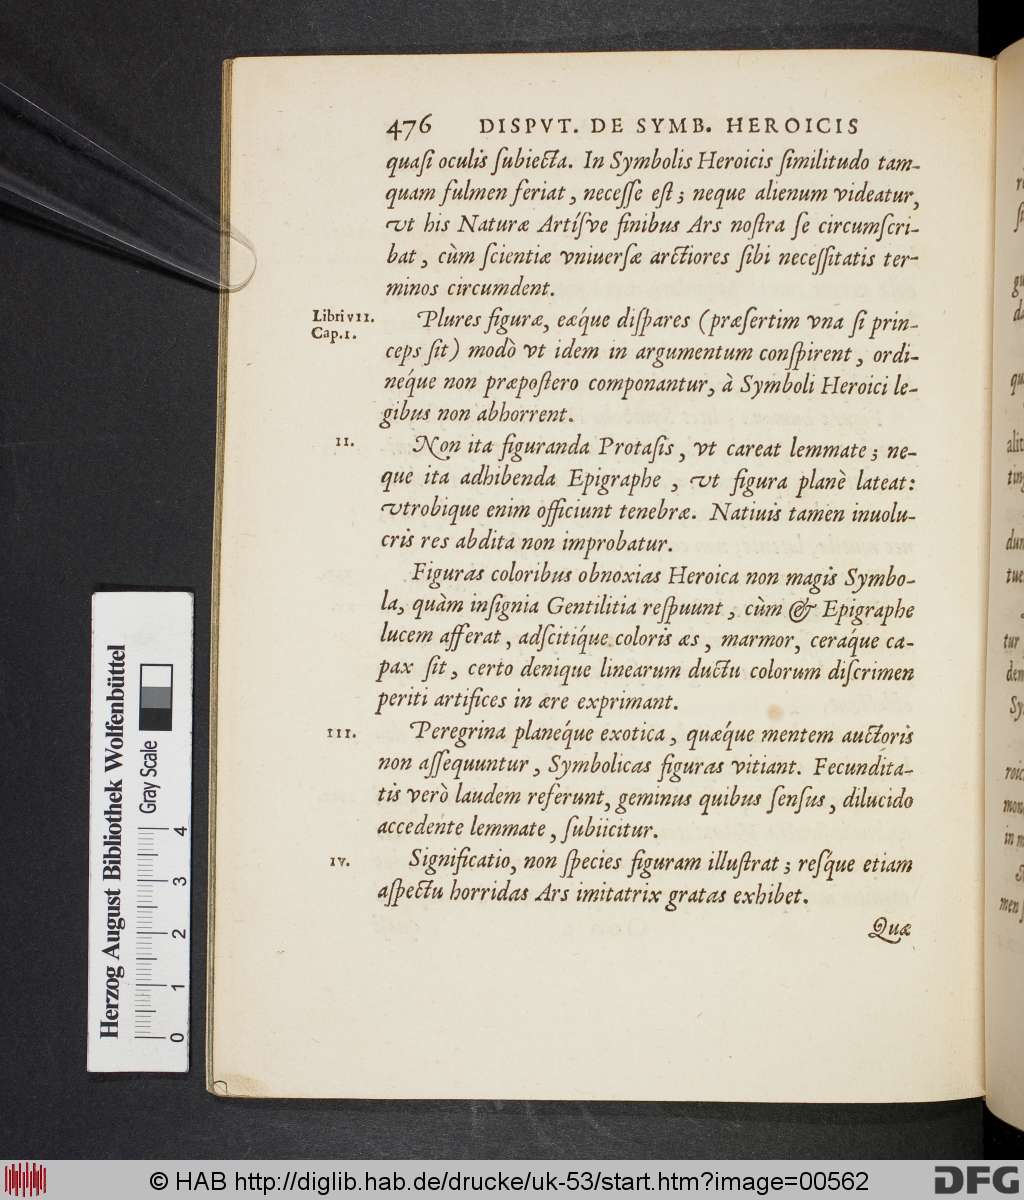 476 DISPVT. DE SYMB. HEROICIS
quaſi oculis ſubiecta. In Symbolis Heroicis ſimilitudo tam-
quam fulmen feriat, neceſſe eſt; neque alienum videatur,
vt his Naturæ Artíſve finibus Ars noſtra ſe circumſcri-
bat, cùm ſcientiæ vniuerſæ arctiores ſibi neceſſitatis ter-
minos circumdent.
Libri VII.
Cap. I.
Plures figuræ, eæq́ue diſpares (præſertim vna ſi prin-
ceps ſit) modò vt idem in argumentum conſpirent, ordi-
neq́ue non præpoſtero componantur, à Symboli Heroici le-
gibus non abhorrent.
II.
Non ita figuranda Protaſis, vt careat lemmate; ne-
que ita adhibenda Epigraphe, vt figura planè lateat:
vtrobique enim officiunt tenebræ. Natiuis tamen inuolu-
cris res abdita non improbatur.
Figuras coloribus obnoxias Heroica non magis Symbo-
la, quàm inſignia Gentilitia reſpuunt, cùm & Epigraphe
lucem afferat, adſcitiq́ue coloris æs, marmor, ceraq́ue ca-
pax ſit, certo denique linearum ductu colorum diſcrimen
periti artifices in ære exprimant.
III.
Peregrina planeq́ue exotica, quæq́ue mentem auctoris
non aſſequuntur, Symbolicas figuras vitiant. Fecundita-
tis verò laudem referunt, geminus quibus ſenſus, dilucido
accedente lemmate, ſubiicitur.
IV.
Significatio, non ſpecies figuram illuſtrat; reſque etiam
aſpectu horridas Ars imitatrix gratas exhibet.
Quæ
Herzog August Bibliothek Wolfenbüttel
Gray Scale
0 1 2 3 4
© HAB http://diglib.hab.de/drucke/uk-53/start.htm?image=00562
DFG